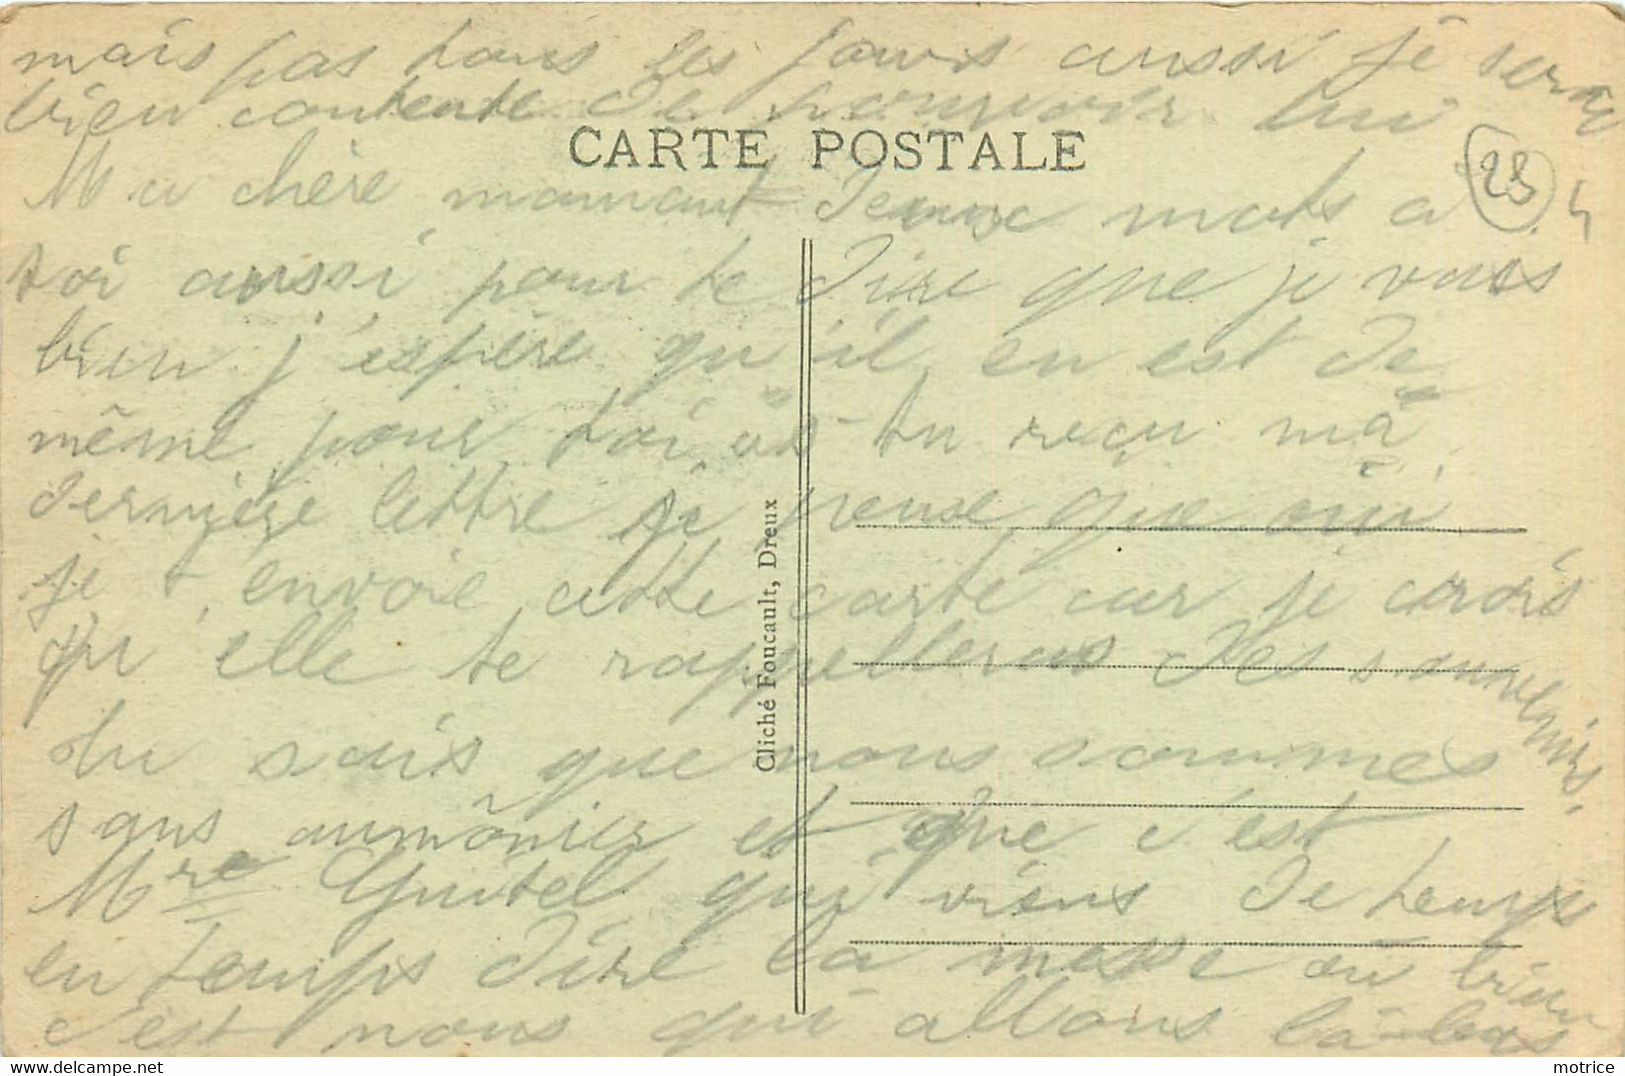 mais pas tous les jours aussi je serai
bien contente de pouvoir lui
CARTE POSTALE
28
Ma chère maman Deux mots a
toi aussi pour te dire que je vais
bien j'espère qu'il en est de
même pour toi as-tu reçu ma
dernière lettre je pense que oui
je t'envoie cette carte car je crois
qu'elle te rappelleras des souvenirs.
tu sais que nous sommes
sans aumônier et que c'est
Mre Guitel qui viens de temps
en temps dire la messe ou bien
c'est nous qui allons là-bas
Cliché Foucault, Dreux
motrice